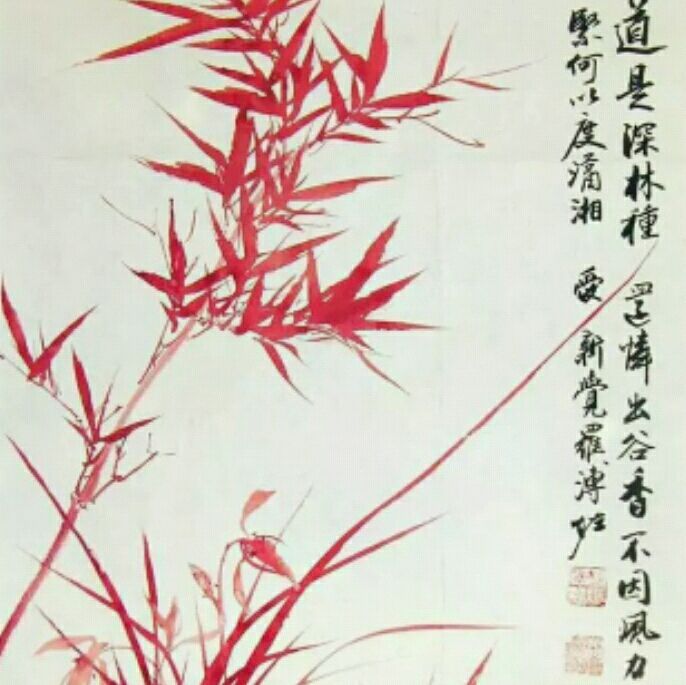 道是深林種 還憐出谷香不因風力
緊何以度瀟湘 愛新覺羅溥佐